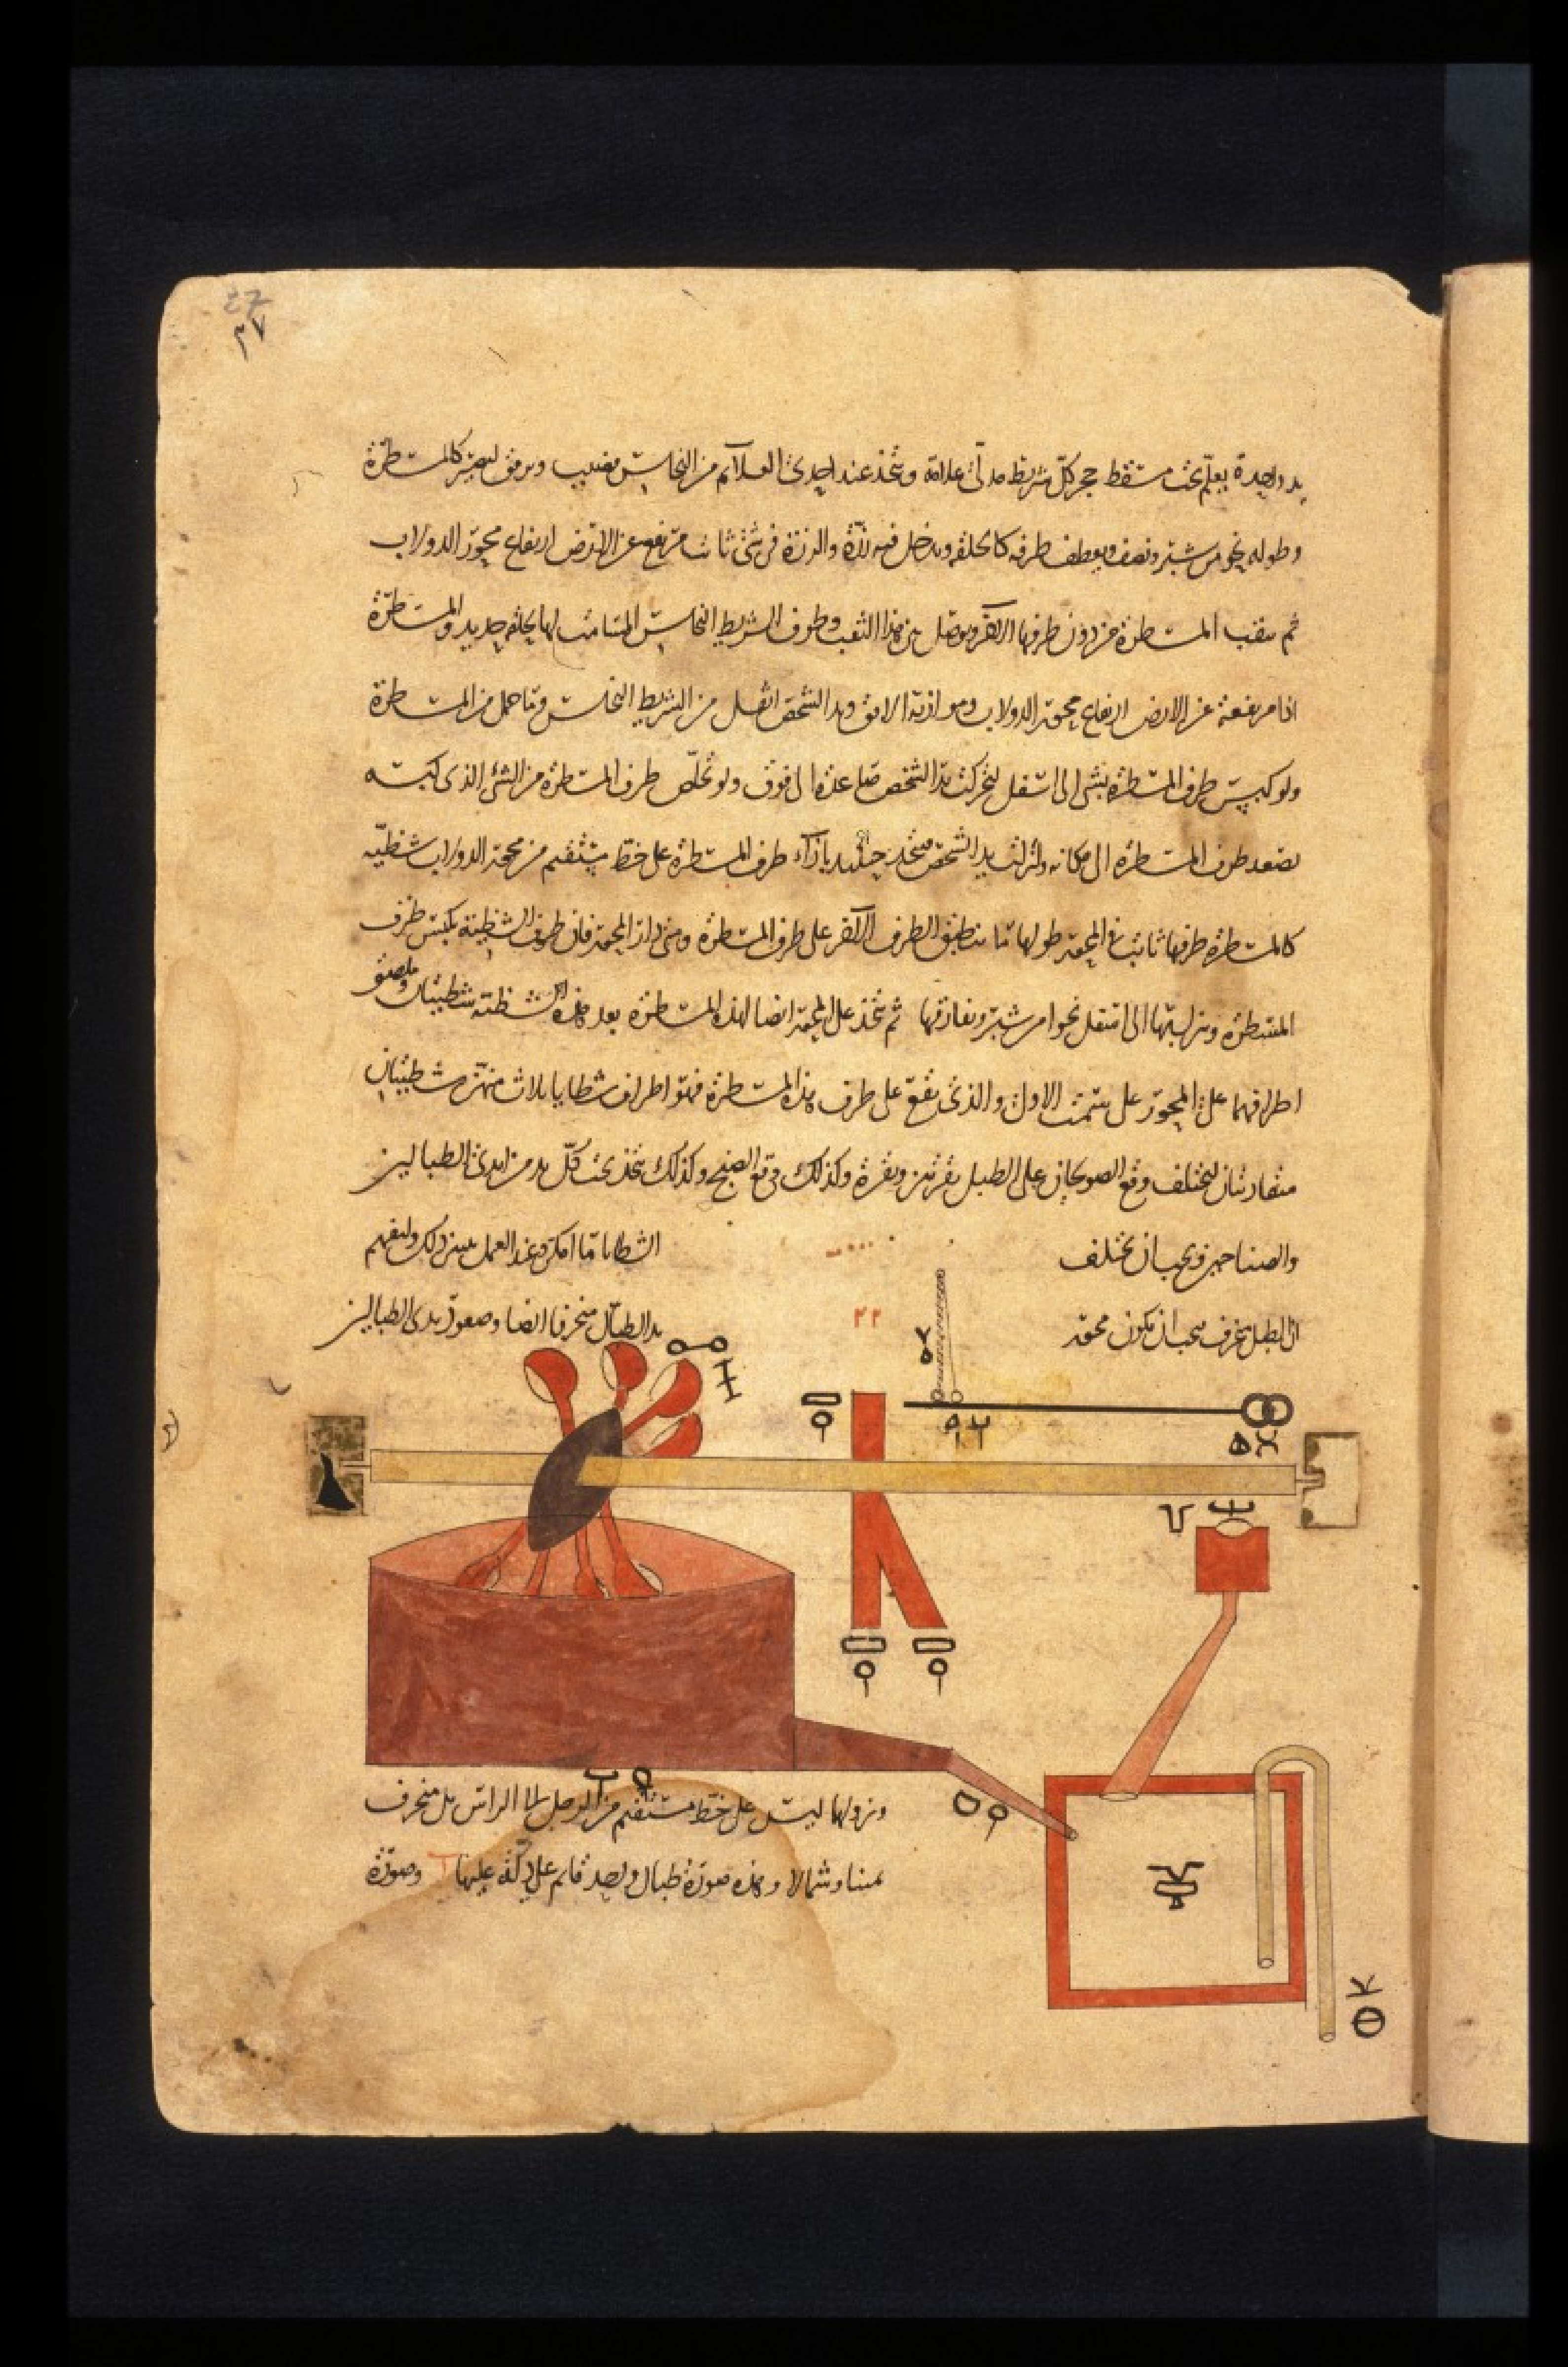 ٣٧
يد واحدة يعلّم تحت مسقط حجر كلّ شريط مدلّى علامة ويتّخذ عند احدى العلائم من النحاس قضيب ويرقق ليصير كالمسطرة
وطوله نحو من شبر ونصف ويعطف طرفه كالحلقة ويدخل فيه رزّة والرزة فى شئ ثابت مرتفع عن الارض ارتفاع محور الدولاب
ثم يثقب المسطرة من دون طرفها الآخر ويوصل بين هذا الثقب وطرف الشريط النحاس المسامت لها بحلقة حديد والمسطرة
اذا مرتفعة عن الارض ارتفاع محور الدولاب وموازية الافق ويد الشخص اثقل من الشريط النحاس وما حمل من المسطرة
ولو كبس طرف المسطرة بشئ الى اسفل لتحركت يد الشخص صاعدة الى فوق ولو تخلّص طرف المسطرة من الشئ الذى كبسه
لصعد طرف المسطرة الى مكانه ولنزلت يد الشخص فيتخذ حينئذ بازآء طرف المسطرة على خط مستقيم من محور الدولاب شظيّة
كالمسطرة طرفها ثابت فى المحور طولها ما ينطبق الطرف الآخر على طرف المسطرة ومتى دار المحور فان طرف الشظية يكبس طرف
المسطرة وينزل بها الى اسفل نحوا من شبر ويفارقها ثم يتخذ على المحور ايضا لهذه المسطرة بعد هذه الشظية شظيتان ويلصق
اطرافهما على المحور على سمت الاول والذى يقع على طرف هذه المسطرة فهو اطراف شظايا ثلاث منهن شظيتان
متقاربتان ليختلف وقع الصولجان على الطبل نقرتين ونقرة وكذلك وقع الصنج وكذلك يتخذ تحت كلّ يد من ايدى الطبالين
والصناجين ويجب ان تختلف الشظايا ما امكن وعند العمل يتبين ذلك وليفهم
انّ الطبل منحرف فيجب ان يكون محور يد الطبّال منحرفا ايضا وصعود يدى الطبالين
٢٢
ونزولها ليس على خط مستقيم من الرجل الى الراس بل منحرف
يمينا وشمالا وهذه صورة طبال واحد قائم على دكّة عليها وصورة